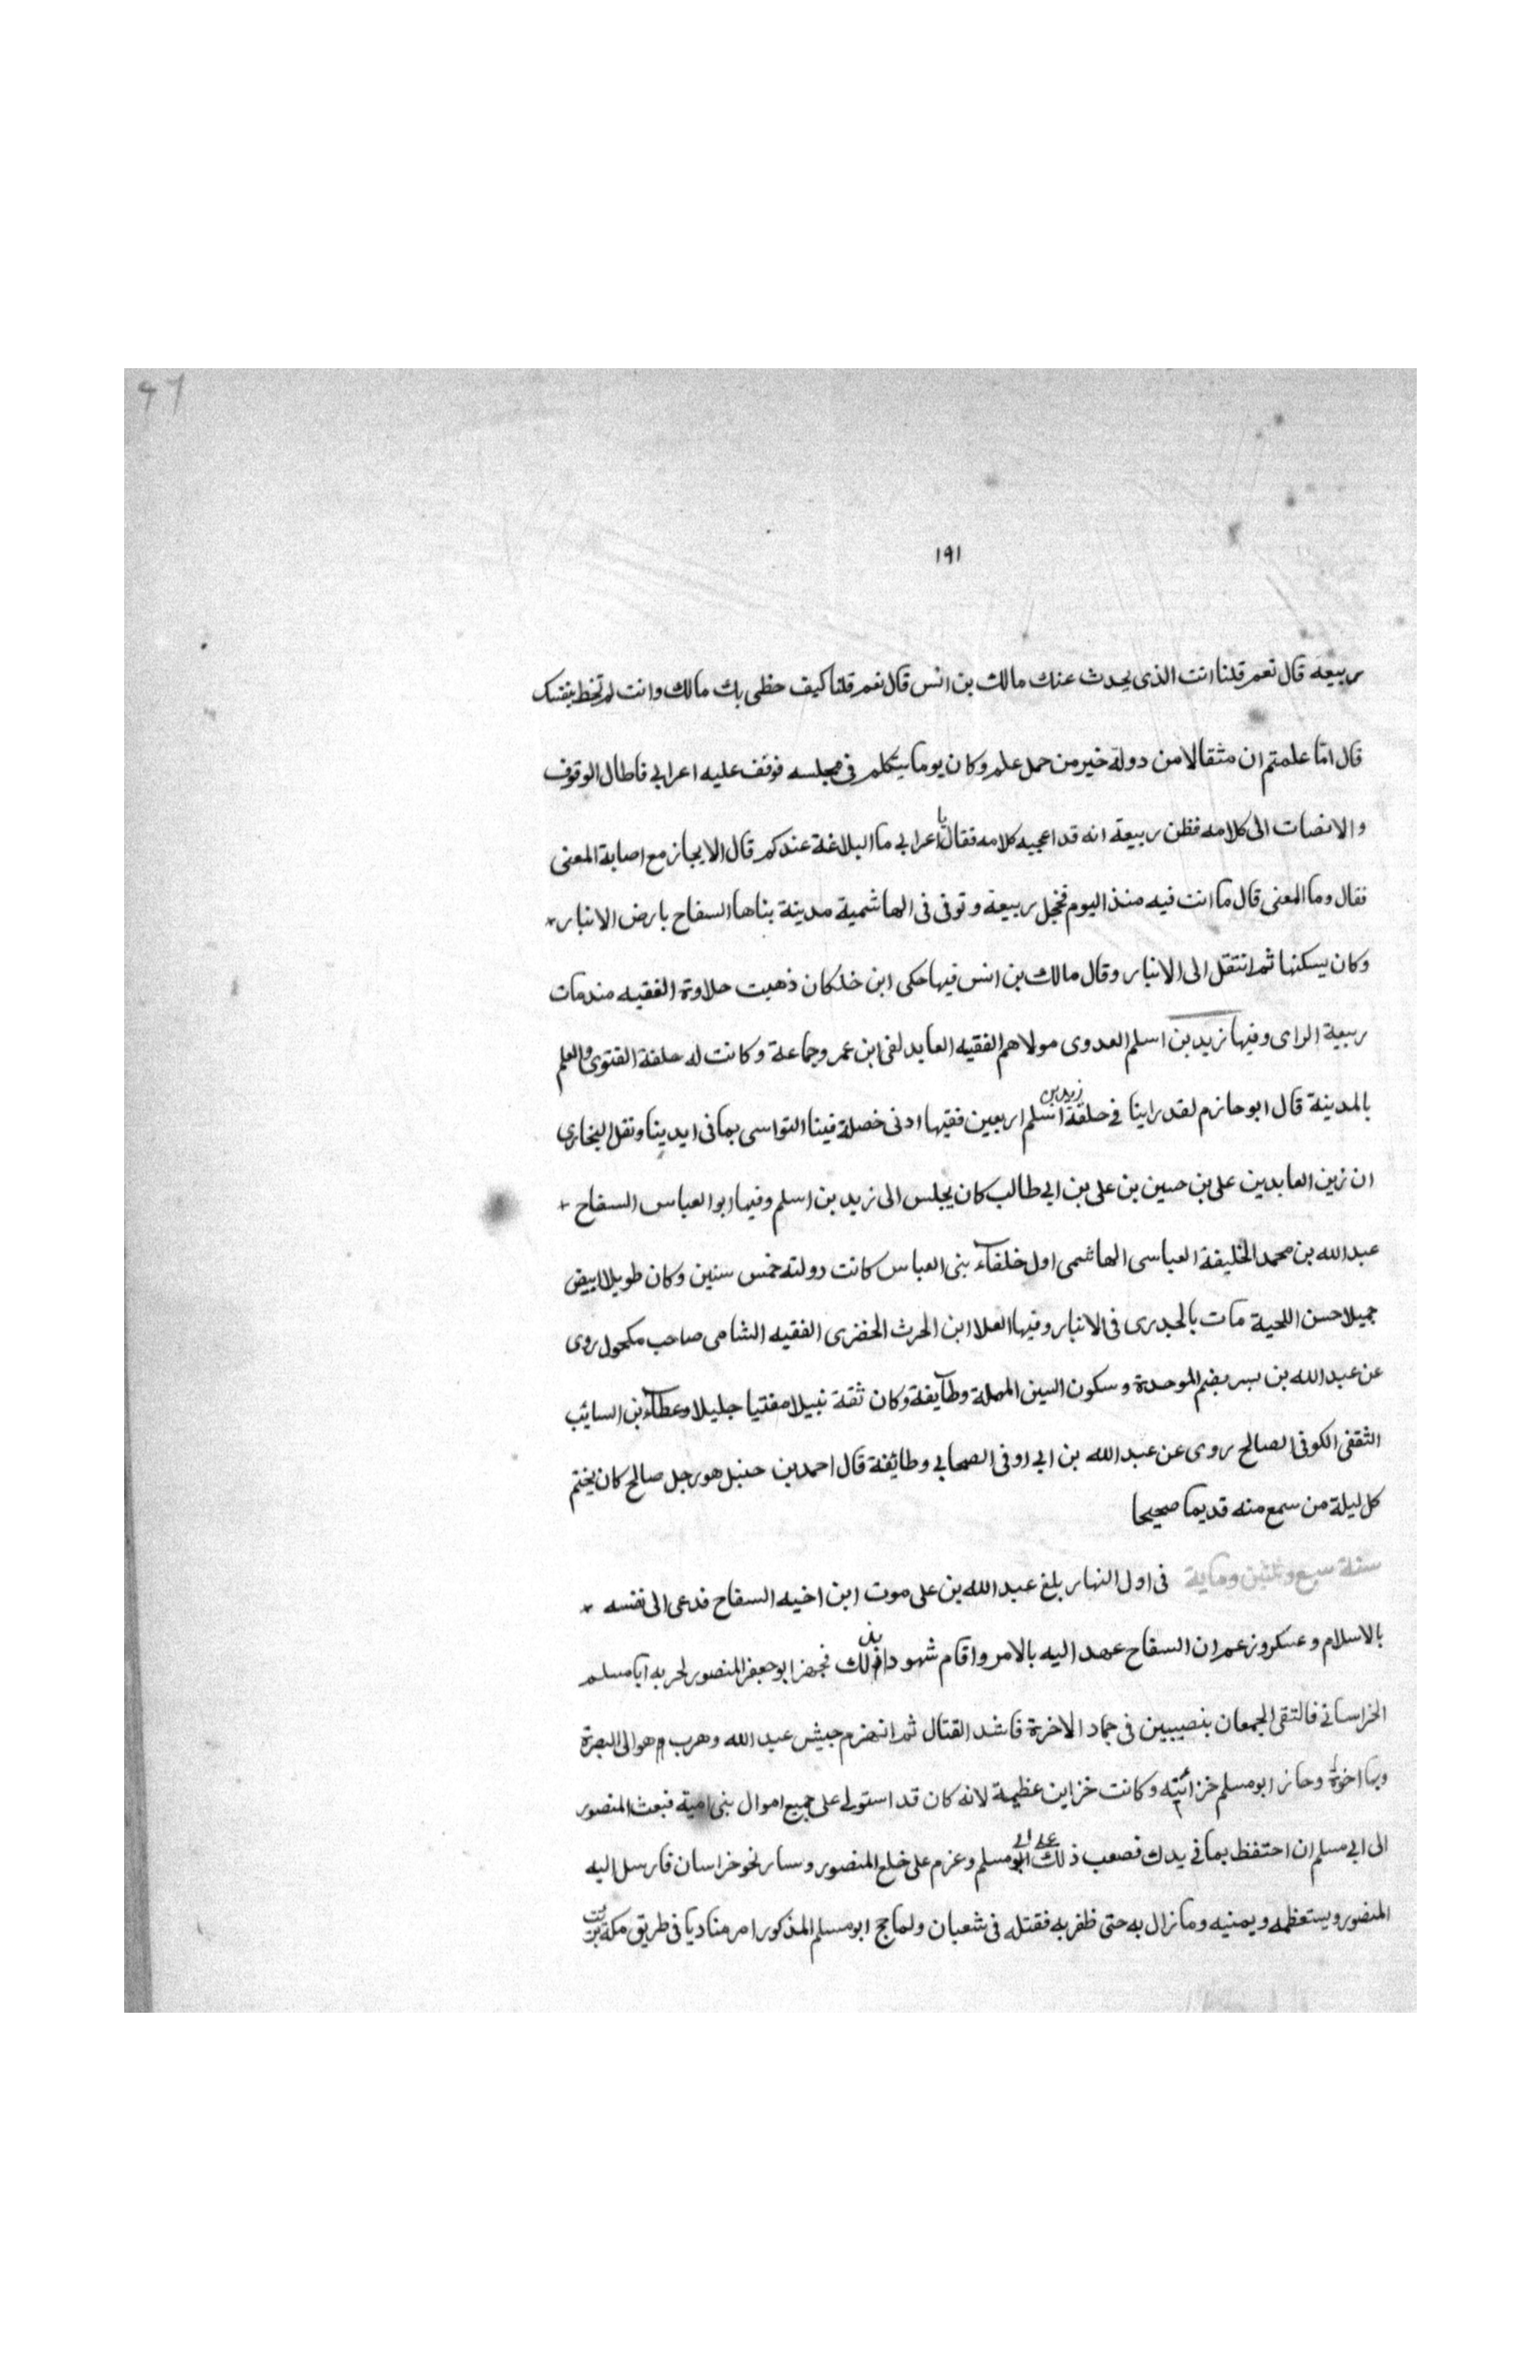 ٩٦
١٩١
ربيعة قال نعم قلنا انت الذى يحدث عنك مالك بن انس قال نعم قلنا كيف حظى بك مالك وانت لم تحظ بنفسك
قال اما علمتم ان مثقالا من دولة خير من حمل علم وكان يوما يتكلم فى مجلسه فوقف عليه اعرابي فاطال الوقوف
والانصات الى كلامه فظن ربيعة انه قد اعجبه كلامه فقال يا اعرابي ما البلاغة عندكم قال الايجاز مع اصابة المعنى
فقال وما المعنى قال ما انت فيه منذ اليوم فخجل ربيعة وتوفى فى الهاشمية مدينة بناها السفاح بارض الانبار
وكان يسكنها ثم انتقل الى الانبار وقال مالك بن انس فيها حكى ابن خلكان ذهبت حلاوة الفقيه منذ مات
ربيعة الراى وفيها زيد بن اسلم العدوى مولاهم الفقيه العابد لقى ابن عمر وجماعة وكانت له حلقة الفتوى والعلم
بالمدينة قال ابو حازم لقد راينا في حلقة زيد بن اسلم اربعين فقيها ادنى خصلة فينا التواسى بما فى ايدينا ونقل البخارى
ان زين العابدين على بن حسين بن على بن ابي طالب كان يجلس الى زيد بن اسلم وفيها ابو العباس السفاح
عبد الله بن محمد الخليفة العباسى الهاشمى اول خلفاء بنى العباس كانت دولته خمس سنين وكان طويلا ابيض
جميلا حسن اللحية مات بالجدرى فى الانبار وفيها العلا ابن الحرث الحضرى الفقيه الشامى صاحب مكحول روى
عن عبد الله بن بسر بضم الموحدة وسكون السين المهملة وطايفة وكان ثقة نبيلا مفتيا جليلا وعطاء بن السايب
الثقفى الكوفى الصالح روى عن عبد الله بن ابي اوفى الصحابي وطائفة قال احمد بن حنبل هو رجل صالح كان يختم
كل ليلة من سمع منه قديما صحيحا
سنة سبع وثلثين وماية فى اول النهار بلغ عبد الله بن على موت ابن اخيه السفاح فدعى الى نفسه
بالاسلام وعسكر وزعم ان السفاح عهد اليه بالامر واقام شهودا بذلك فجهز ابو جعفر المنصور لحربه ابا مسلم
الخراساني فالتقى الجمعان بنصيبين فى جماد الاخرة فاشد القتال ثم انهزم جيش عبد الله وهرب هو الى البصرة
وبها اخوة وحاز ابو مسلم خزائنه وكانت خزاين عظيمة لانه كان قد استولى على جميع اموال بنى امية فبعث المنصور
الى ابي مسلم ان احتفظ بما في يدك فصعب ذلك على ابي مسلم وعزم على خلع المنصور وسار نحو خراسان فارسل اليه
المنصور ويستعظمه ويمنيه وما زال به حتى ظفر به فقتله فى شعبان ولما حج ابو مسلم المذكور امر مناديا فى طريق مكة